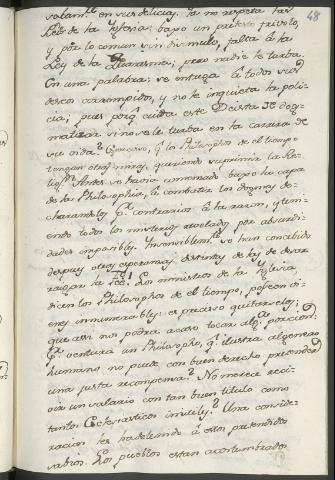 48
solam.te en sus delicias, ya no respeta las
Leyes de la Iglesia: baxo un pretexto frivolo,
y por lo comun sin disimulo, falta à la
Ley de la Quaresma; pero nadie le turba.
En una palabra: se entrega à todos sus
deseos corrompidos, y no le inquieta la poli-
cia; pues porq. cuida este Deista de dog-
matizar si no se le turba en la carrera de
su vida?
tengan otras miras queriendo suprimir la Re-
lig.n Antes se havia comenzado baxo la capa
de la Philosophia à combatir los dogmas de-
charandolos p.r contrarios à la razon, y tem-
endo todos los misterios revelados por absurdi-
dades imposibles. Insensiblem.te se han concebido
despues otras esperanzas distintas de las de desar-
raigar la Fè. Los ministros de la Iglesia,
dicen los Philosophos de el tiempo, poseen vi-
enes innumerables: es preciso quitarselos;
que assi nos podrà acaso tocar alg.a porcion.
P.r ventura un Philosopho, q. ilustra al genero
humano no puede con buen derecho pretender
una justa recompensa? No merece reci-
vir un salario con tan buen titulo como
tantos Eclesiasticos inutiles? Una conside-
racion les ha detenido à estos pretendidos
sabios. Los pueblos estan acostumbrados